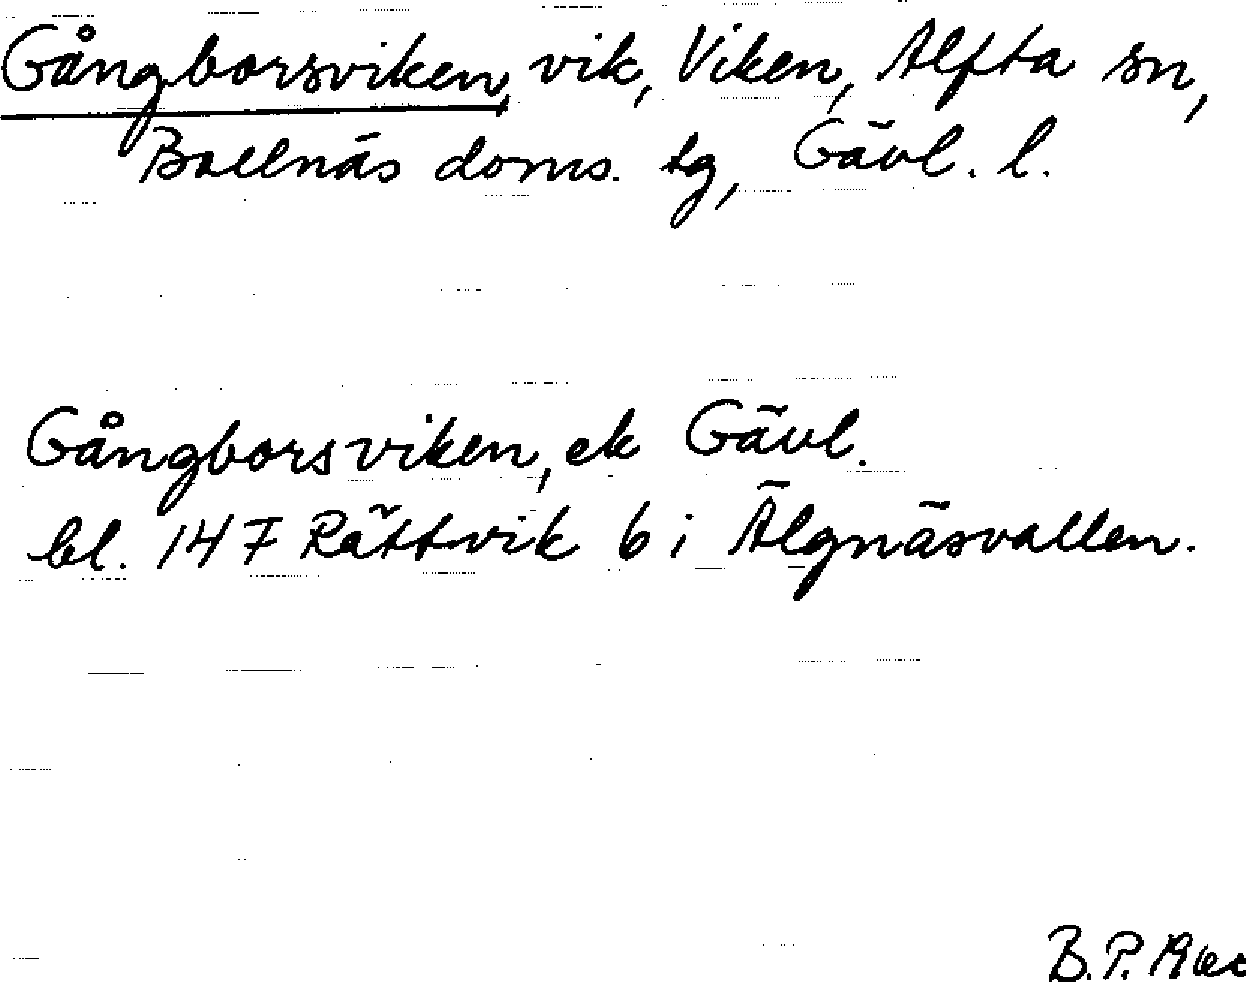 Gångborsviken, vik, Viken, Alfta sn,
Bollnäs doms. tg, Gävl. l.
Gångborsviken, ek Gävl.
bl. 147 Rättvik 6 i Älgnäsvallen.
B. P.